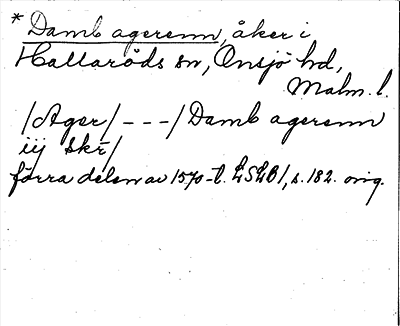 * Damb agerenn, åker i
Hallaröds sn, Onsjö hd,
Malm. l.
/Ager/ - - - / Damb agerenn
iij skr/
förra delen av 1570-t. LSLB1, s. 182. orig.